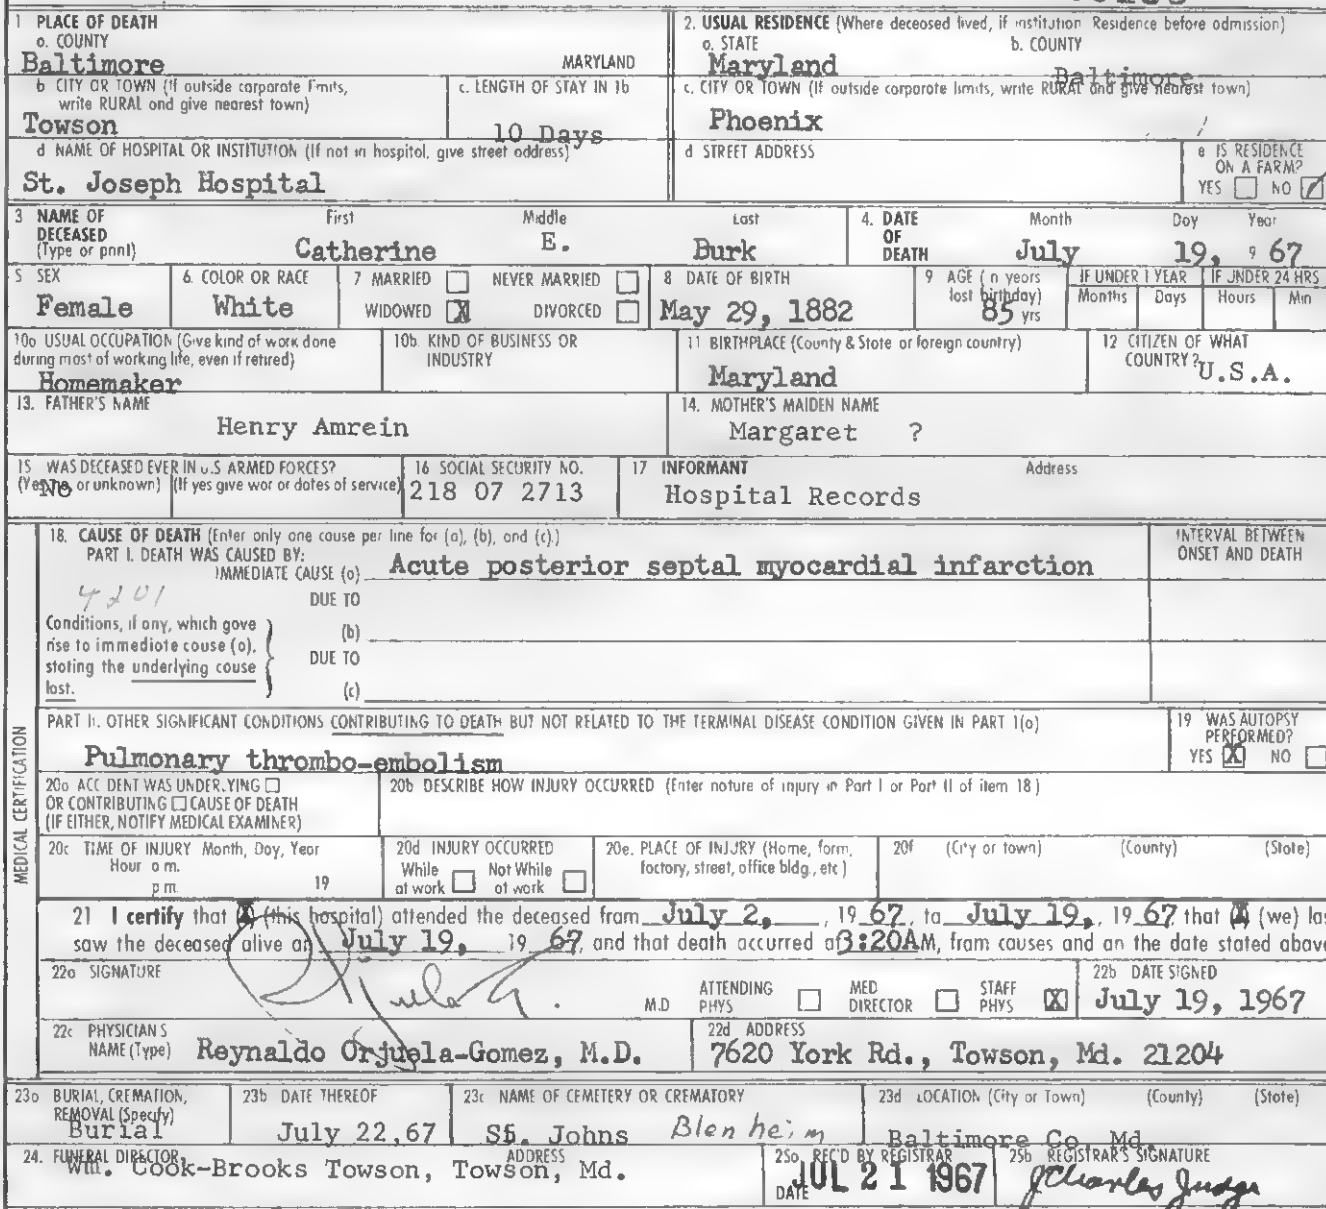 1 PLACE OF DEATH
a. COUNTY
Baltimore MARYLAND
2. USUAL RESIDENCE (Where deceased lived, if institution Residence before admission)
a. STATE b. COUNTY
Maryland Baltimore
b CITY OR TOWN (If outside corporate limits, write RURAL and give nearest town)
Towson
c. LENGTH OF STAY IN 1b
10 Days
c. CITY OR TOWN (If outside corporate limits, write RURAL and give nearest town)
Phoenix
d NAME OF HOSPITAL OR INSTITUTION (If not in hospital, give street address)
St. Joseph Hospital
d STREET ADDRESS
e IS RESIDENCE ON A FARM?
YES NO
3 NAME OF DECEASED (Type or print)
First Middle Last
Catherine E. Burk
4. DATE OF DEATH
Month Day Year
July 19, 9 67
5 SEX
Female
6. COLOR OR RACE
White
7 MARRIED NEVER MARRIED
WIDOWED X DIVORCED
8 DATE OF BIRTH
May 29, 1882
9 AGE (In years last birthday)
85 yrs
IF UNDER 1 YEAR
Months Days
IF UNDER 24 HRS
Hours Min
10a USUAL OCCUPATION (Give kind of work done during most of working life, even if retired)
Homemaker
10b. KIND OF BUSINESS OR INDUSTRY
11 BIRTHPLACE (County & State or foreign country)
Maryland
12 CITIZEN OF WHAT COUNTRY?
U.S.A.
13. FATHER'S NAME
Henry Amrein
14. MOTHER'S MAIDEN NAME
Margaret ?
15 WAS DECEASED EVER IN U.S ARMED FORCES?
(Yes, no, or unknown) (If yes give war or dates of service)
No
16 SOCIAL SECURITY NO.
218 07 2713
17 INFORMANT Address
Hospital Records
MEDICAL CERTIFICATION
18. CAUSE OF DEATH (Enter only one cause per line for (a), (b), and (c).)
PART I. DEATH WAS CAUSED BY:
IMMEDIATE CAUSE (a) Acute posterior septal myocardial infarction
INTERVAL BETWEEN ONSET AND DEATH
4201
DUE TO
Conditions, if any, which gave rise to immediate cause (a), stating the underlying cause last.
(b)
DUE TO
(c)
PART II. OTHER SIGNIFICANT CONDITIONS CONTRIBUTING TO DEATH BUT NOT RELATED TO THE TERMINAL DISEASE CONDITION GIVEN IN PART 1(a)
Pulmonary thrombo-embolism
19 WAS AUTOPSY PERFORMED?
YES X NO
20a ACCIDENT WAS UNDERLYING
OR CONTRIBUTING CAUSE OF DEATH
(IF EITHER, NOTIFY MEDICAL EXAMINER)
20b DESCRIBE HOW INJURY OCCURRED (Enter nature of injury in Part I or Part II of item 18)
20c TIME OF INJURY Month, Day, Year
Hour a m.
p m. 19
20d INJURY OCCURRED
While at work Not While at work
20e. PLACE OF INJURY (Home, farm, factory, street, office bldg., etc)
20f (City or town) (County) (State)
21 I certify that X (this hospital) attended the deceased from July 2, , 19 67, to July 19, , 19 67 that X (we) las
saw the deceased alive on July 19, 19 67, and that death occurred at 3:20AM, from causes and on the date stated above
22a SIGNATURE
M.D
ATTENDING PHYS MED DIRECTOR STAFF PHYS X
22b DATE SIGNED
July 19, 1967
22c PHYSICIAN'S NAME (Type) Reynaldo Orjuela-Gomez, M.D.
22d ADDRESS
7620 York Rd., Towson, Md. 21204
23a BURIAL, CREMATION, REMOVAL (Specify)
Burial
23b DATE THEREOF
July 22,67
23c NAME OF CEMETERY OR CREMATORY
St. Johns Blenheim
23d LOCATION (City or Town) (County) (State)
Baltimore Co, Md.
24. FUNERAL DIRECTOR ADDRESS
Wm. Cook-Brooks Towson, Towson, Md.
25a. REC'D BY REGISTRAR
DATE JUL 21 1967
25b REGISTRAR'S SIGNATURE
J Charles Judge